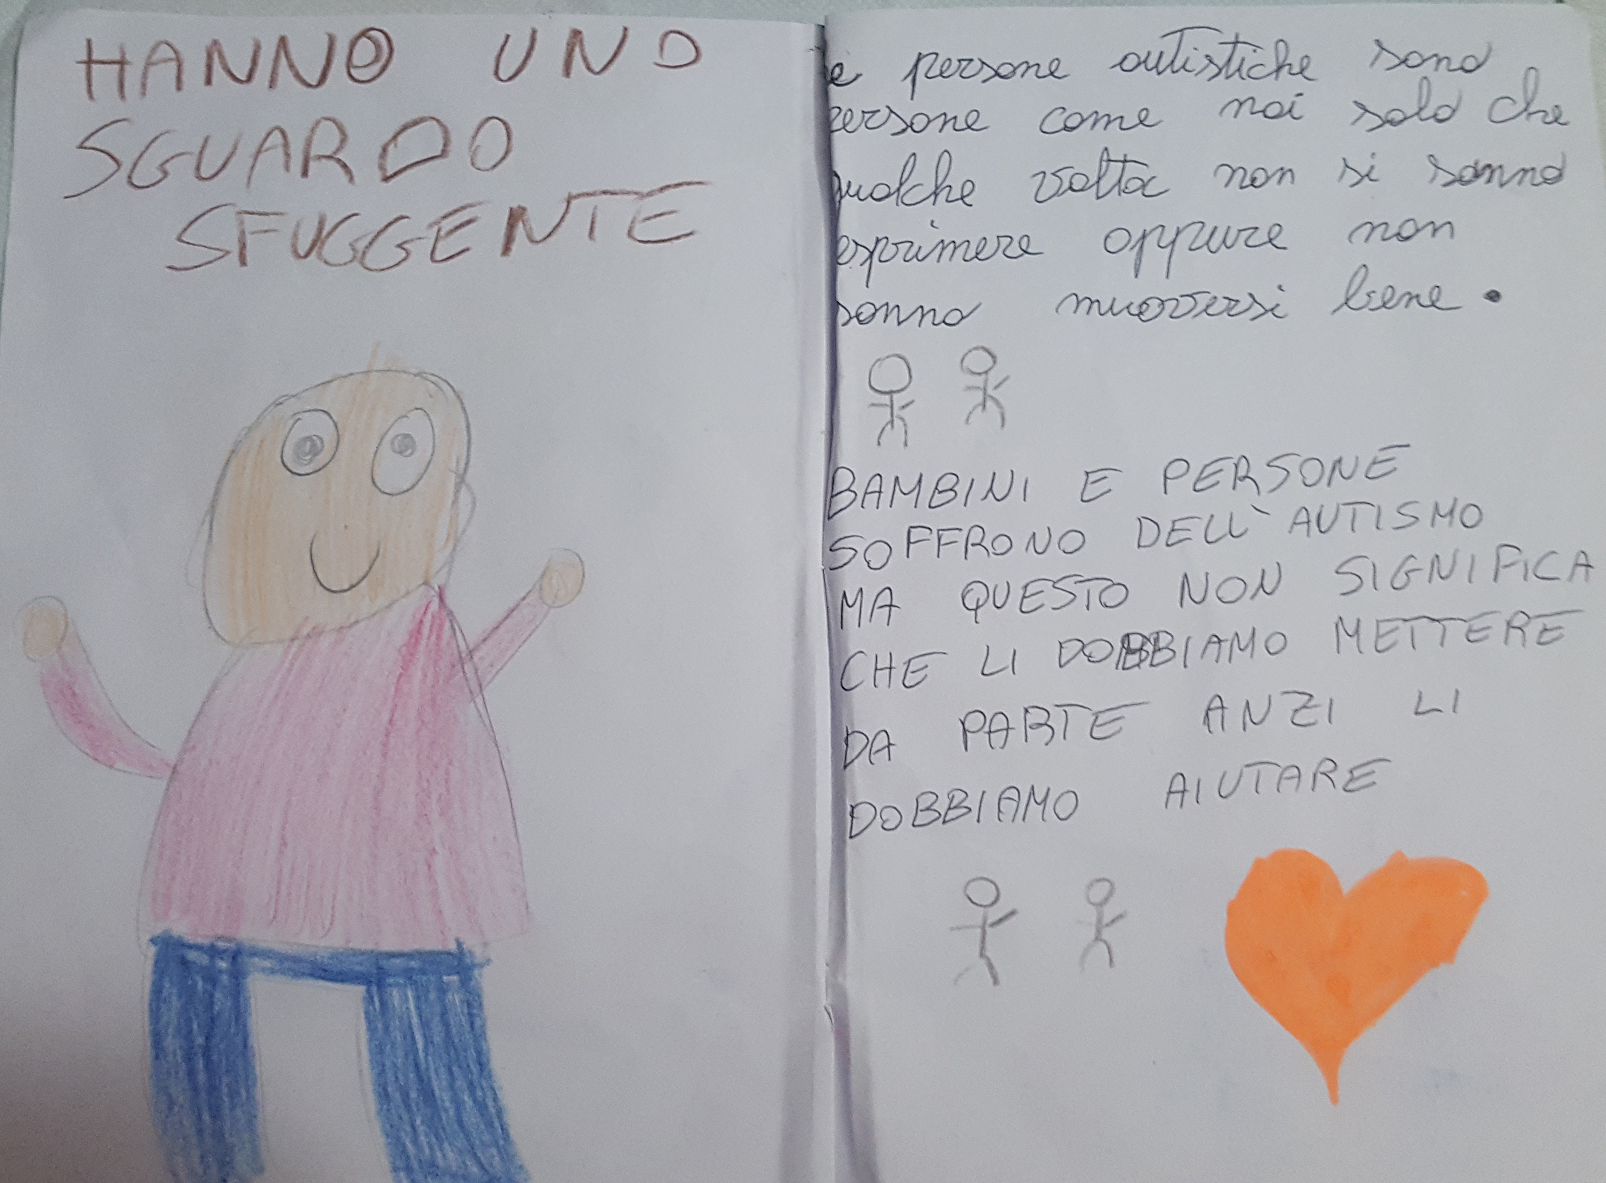 HANNO UNO
SGUARDO
SFUGGENTE
e persone autistiche sono
persone come noi solo che
qualche volta non si sanno
esprimere oppure non
sanno muoversi bene.
BAMBINI E PERSONE
SOFFRONO DELL'AUTISMO
MA QUESTO NON SIGNIFICA
CHE LI DOBBIAMO METTERE
DA PARTE ANZI LI
DOBBIAMO AIUTARE